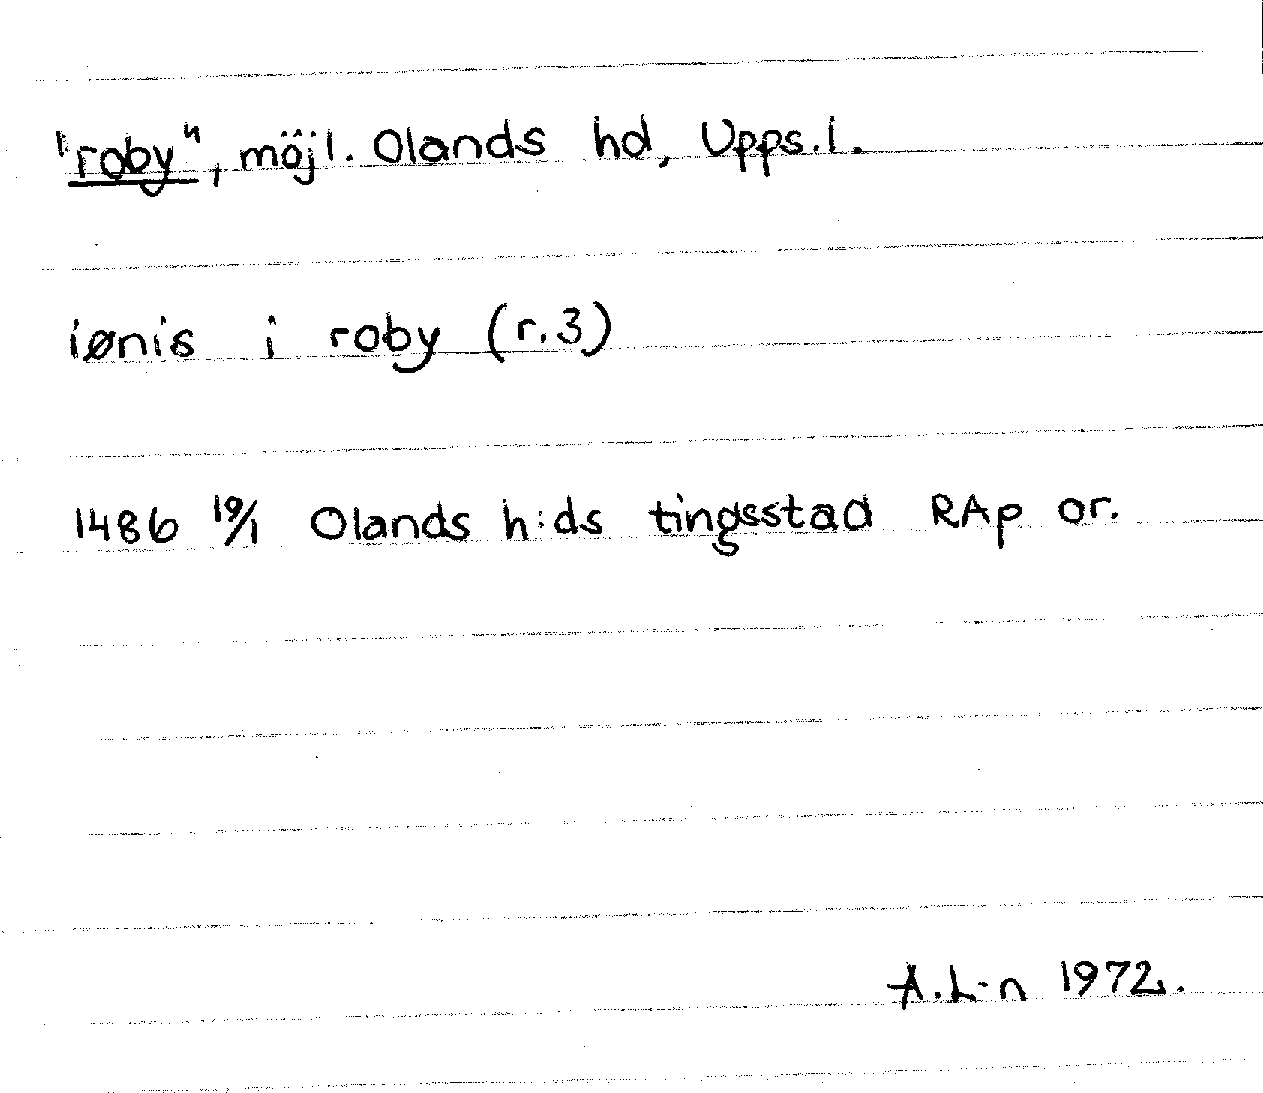 "roby", möjl. Olands hd, Upps.l.
iønis i roby (r.3)
1486 19/1 Olands h:ds tingsstad RAp or.
A.L-n 1972.